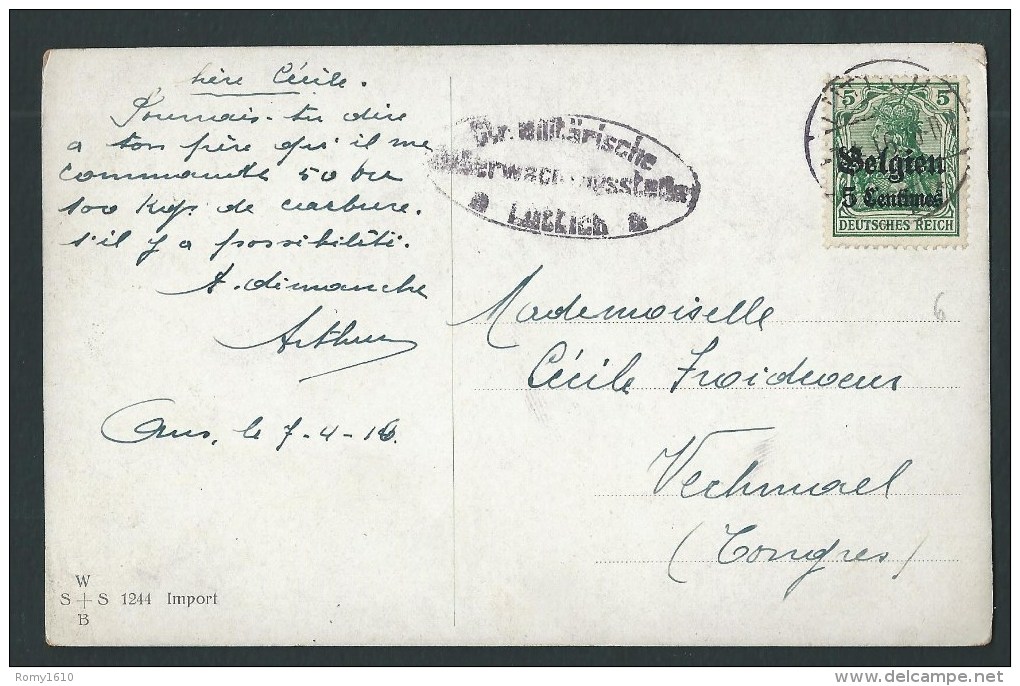 Chère Cécile.
Pourrais-tu dire
a ton père qu'il me
commande 50 ou
100 Kgs de carbure.
s'il y a possibilité.
A dimanche
Arthur
Ans, le 7-4-16.
W
S S 1244 Import
B
Militärische
Überwachungsstelle
Lüttich
5 5
Belgien
5 Centimes
DEUTSCHES REICH
Mademoiselle
Cécile Froidvoeux
Vechmael
(Tongres)
6
Romy1610
delcampe.net